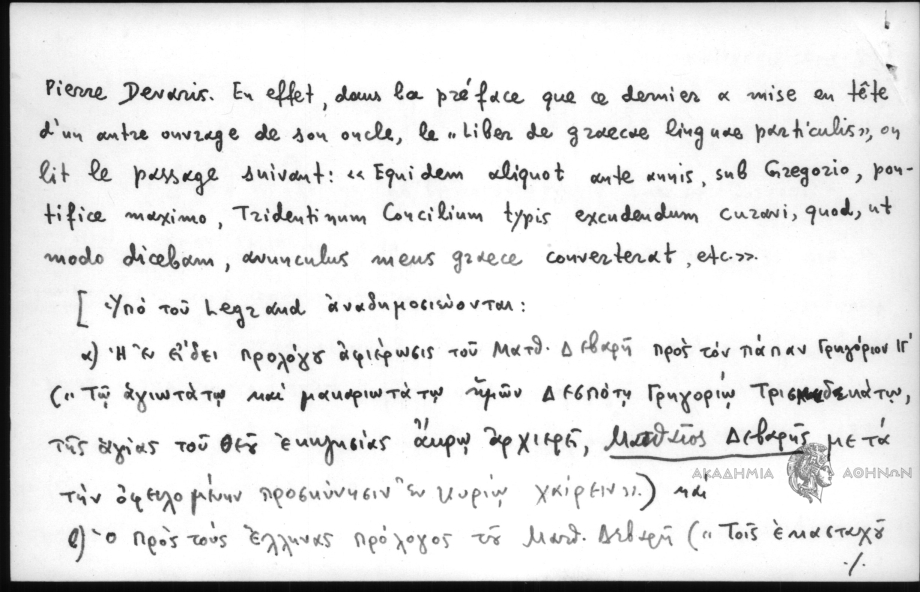 Pierre Devaris. En effet, dans la préface que ce dernier a mise en tête
d'un autre ouvrage de son oncle, le «Liber de graecae linguae particulis», on
lit le passage suivant: «Equidem aliquot ante annis, sub Gregorio, pon-
tifice maximo, Tridentinum Concilium typis excudendum curavi, quod, ut
modo dicebam, avunculus meus graece converterat, etc.».
[Ὑπό τοῦ Legrand ἀναδημοσιεύονται:
α) Ἡ ἐν εἴδει προλόγου ἀφιέρωσις τοῦ Ματθ. Δεβαρῆ πρὸς τόν πάπαν Γρηγόριον ΙΓ'
(«Τῷ ἁγιωτάτῳ καί μακαριωτάτῳ ἡμῶν Δεσπότῃ Γρηγορίῳ Τρισκαιδεκάτῳ,
τῆς ἁγίας τοῦ Θεοῦ ἐκκλησίας ἄκρῳ ἀρχιερεῖ, Ματθαῖος Δεβαρῆς μετά
τήν ὀφειλομένην προσκύνησιν ἐν Κυρίῳ χαίρειν».) καί
ΑΚΑΔΗΜΙΑ ΑΘΗΝΩΝ
β) Ὁ πρὸς τούς Ἕλληνας πρόλογος τοῦ Ματθ. Δεβαρῆ («Τοῖς ἑκασταχοῦ
./.